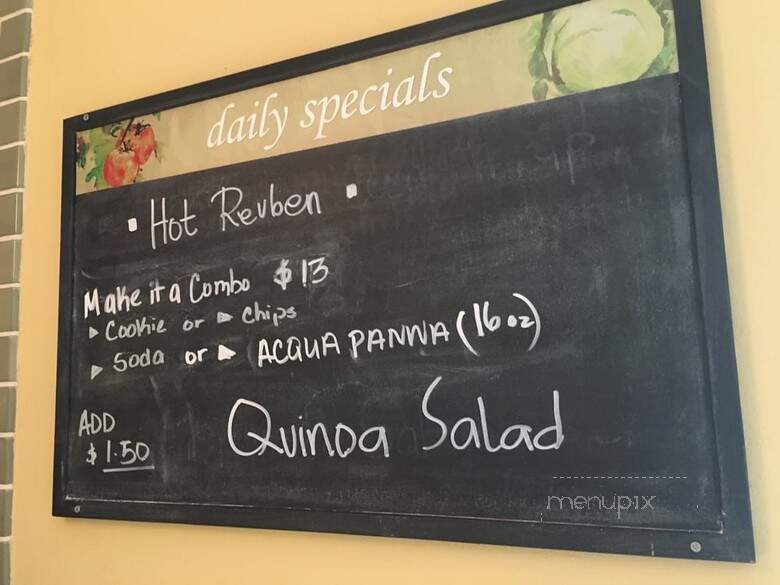 daily specials
Hot Reuben
Make it a Combo $13
Cookie or Chips
Soda or ACQUA PANNA (16 oz)
ADD
$1.50
Quinoa Salad
menupix